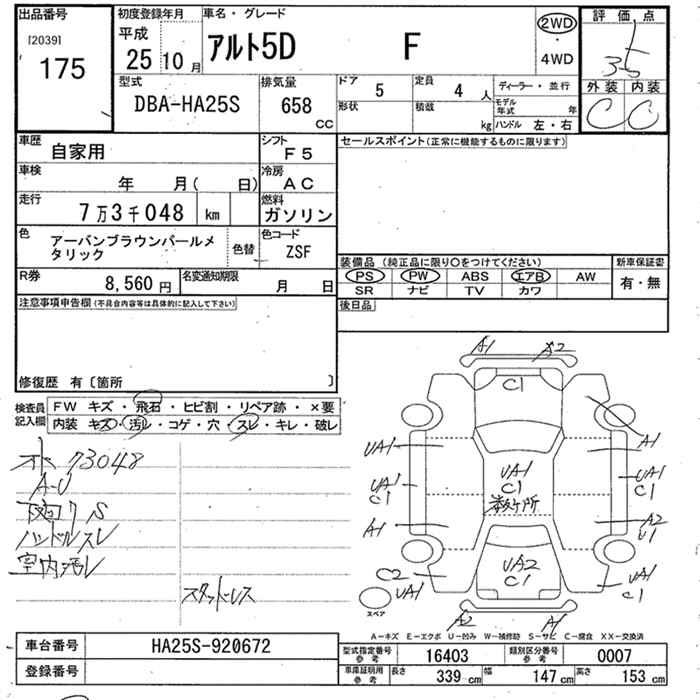 出品番号
[2039]
175
初度登録年月
平成
25 10月
車名・グレード
アルト5D F
2WD
・
4WD
評価点
3.5
外装 内装
C C
型式
DBA-HA25S
排気量
658
CC
ドア
5
定員
4 人
形状
積載
kg
ディーラー・並行
モデル年式 年
ハンドル 左・右
車歴
自家用
シフト
F5
セールスポイント(正常に機能するものに限ります)
車検
年 月( 日)
冷房
AC
走行
7万3千048 km
燃料
ガソリン
色
アーバンブラウンパールメ
タリック
色替
色コード
ZSF
装備品 (純正品に限り○をつけてください)
PS PW ABS エアB AW
SR ナビ TV カワ
新車保証書
有・無
R券
8,560 円
名変通知期限
月 日
後日品
注意事項申告欄(不具合内容等は具体的に記入して下さい)
修復歴 有〔箇所 〕
検査員
記入欄
FW キズ・飛石・ヒビ割・リペア跡・×要
内装 キズ・汚レ・コゲ・穴・スレ・キレ・破レ
73048
A-U
ハンドルスレ
室内汚レ
スタットレス
A1 A2
C1
UA1
A1
UA1
C1
UA1
C1
UA1
C1
A1
A2
U1
UA2
C1
C2
UA1
UA1
C1
スペア
A2 A1
A-キズ E-エクボ U-凹み W-補修跡 S-サビ C-腐食 XX-交換済
車台番号
HA25S-920672
登録番号
型式指定番号
参考
16403
類別区分番号
参考
0007
車庫証明用
参考
長さ 339 cm 幅 147 cm 高さ 153 cm